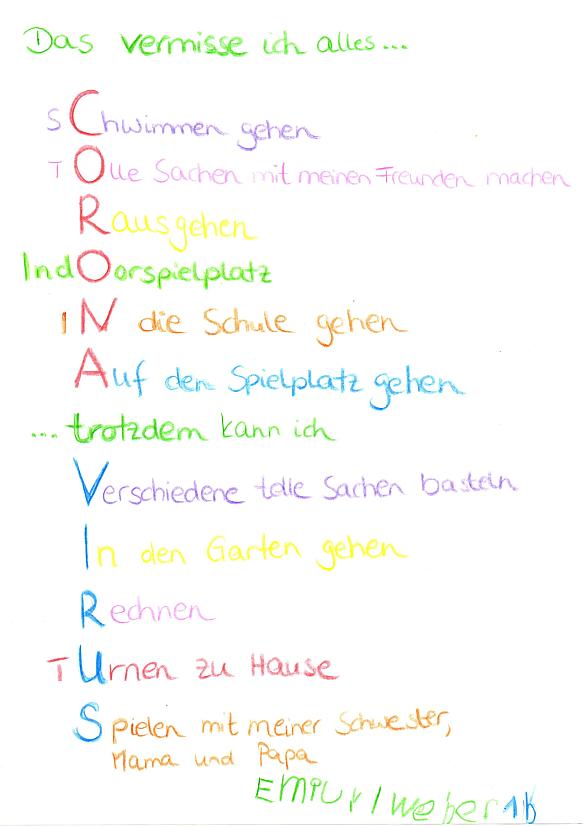 Das vermisse ich alles...
SChwimmen gehen
TOlle Sachen mit meinen Freunden machen
Rausgehen
IndOorspielplatz
IN die Schule gehen
Auf den Spielplatz gehen
... trotzdem kann ich
Verschiedene tolle Sachen basteln
In den Garten gehen
Rechnen
TUrnen zu Hause
Spielen mit meiner Schwester,
Mama und Papa
Weber 1b